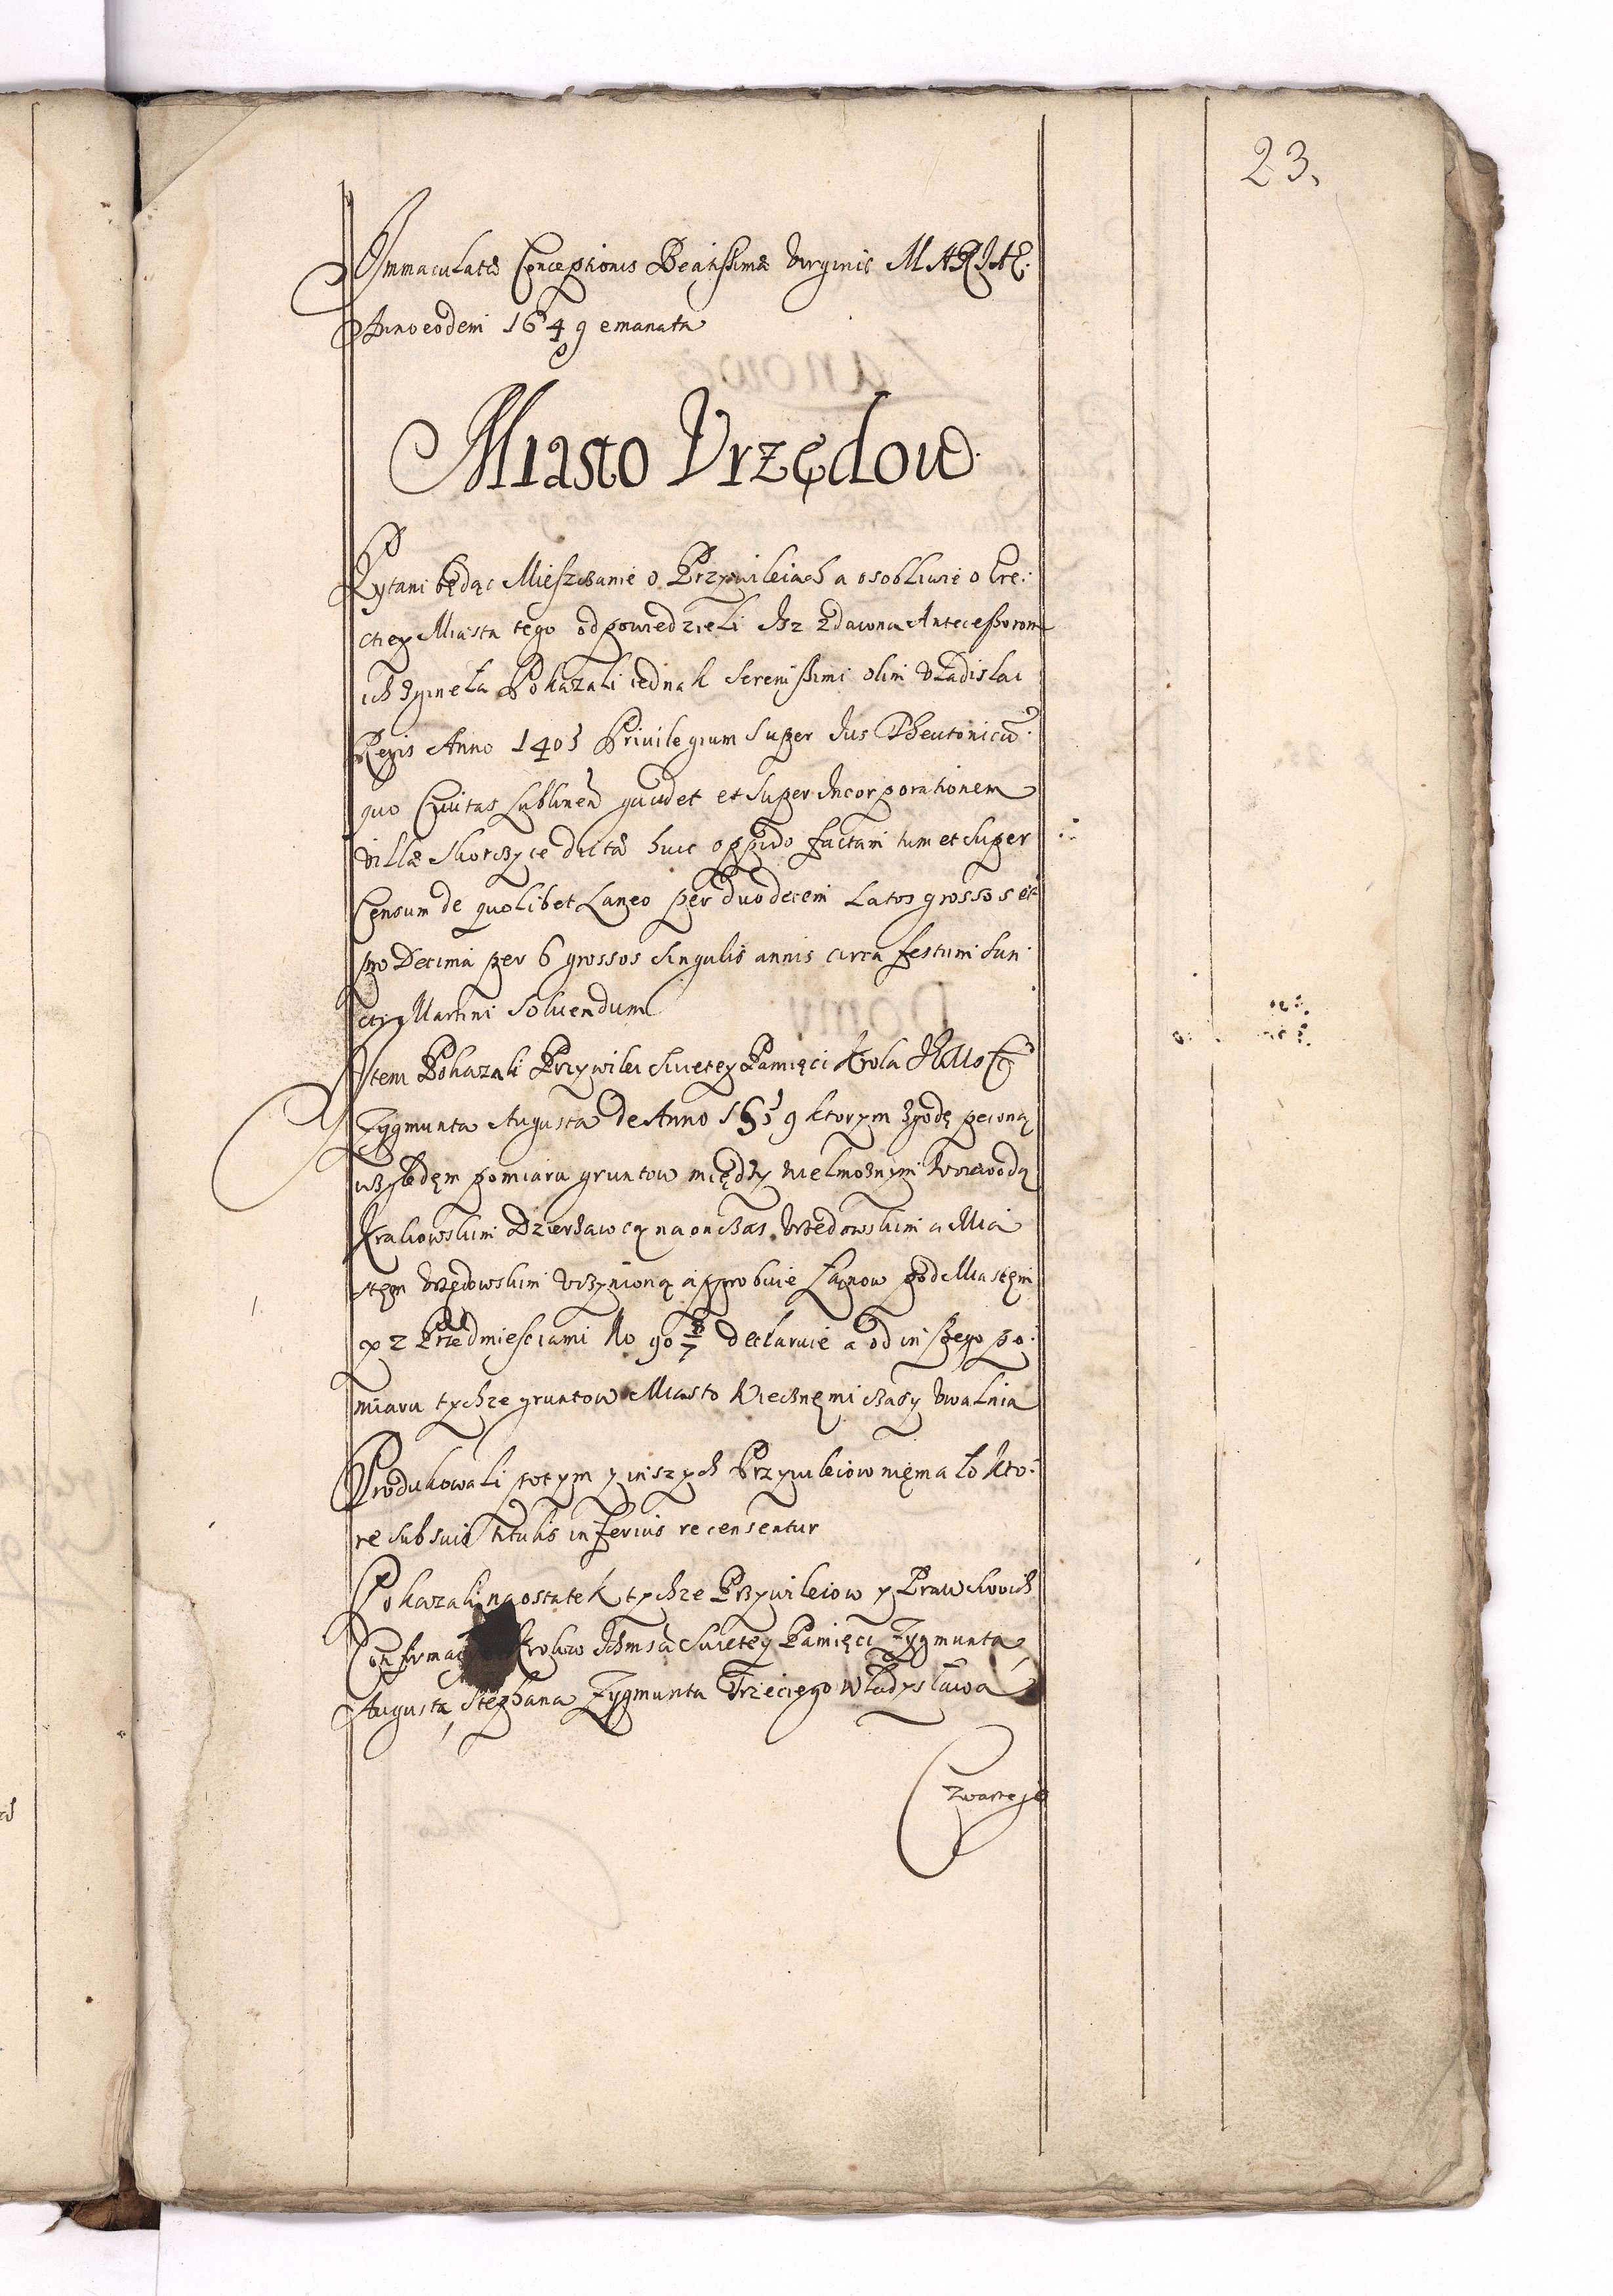 23.
Immaculatæ Conceptionis Beatissimæ Virginis MARIAE.
Anno eodem 1649 emanata
Miasto Vrzędow
Pytani będąc Mieszczanie o Przywileiach a osobliwie o Ere:
ctiey Miasta tego odpowiedzieli Isz zdawna Antecessorom
ich zgineła Pokazali iednak Serenissimi olim Vladislai
Regis Anno 1405 Privilegium Super Ius Theutonicũ
quo Civitas Lublinen gaudet et Super Incorporationem
Villæ Skorczyce dictæ huic oppido factam tum et Super
Censum de quolibet Laneo per duodecem Latos grossos et
pro Decima per 6 grossos Singulis annis circa festum San
cti Martini Solvendum
Item Pokazali Przywilei Swietey Pamięci Krola
Zygmunta Augusta de Anno 1559 ktorym zgodę pewną
względem pomiaru gruntow między Wielmożnym Woiewodą
Krakowskim Dzierżawcą na on czas Vrzędowskim a Mia
stem Vrzędowskim Vczynioną approbuie Łanow pod Miastem
y z Przedmiesciami No 90 declaruie a od inszego po:
miaru tychże gruntow Miasto Wiecznemi czasy Vwalnia
Produkowali potym y inszych Przywileiow niemało kto:
re sub suis titulis inferius recensentur
Pokazali naostatek tychże Przywileiow y Praw Swoich
Krolow Ichmsci Swietey Pamięci Zygmunta
Augusta, Stephana Zygmunta Trzeciego Władysława
Czwartego